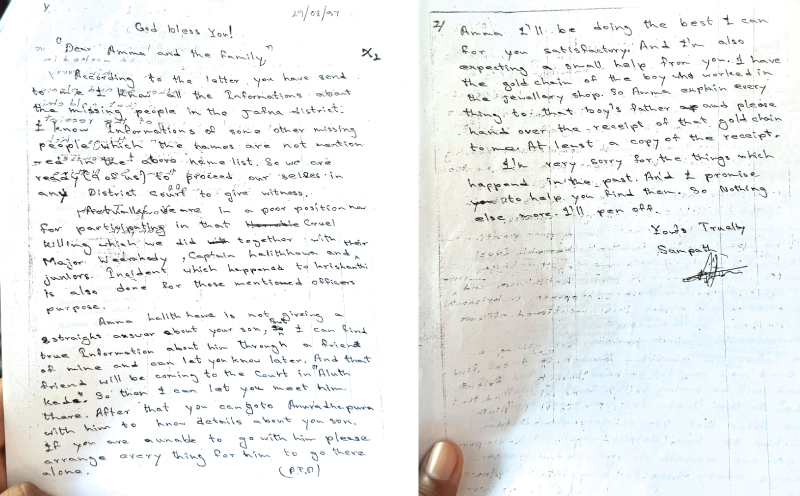 1/
29/03/97
God bless you!
"Dear Amma and the family,"
X1
According to the letter, you have send
to me I know all the Informations about
the missing people in the Jafna district.
I know Informations of some other missing
people (which the names are not mention
-ed in the above name list. So we are
ready ( of us) to proceed our selves in
any District court to give witness.
Actually we are in a poor position now
for participating in that Cruel
killing which we did together with their
Major , Captain lalithhewa and
juniors. Incident which happened to krishanthi
is also done for those mentioned officers
purpose.
Amma lalith hewa is not giveing a
straight answer about your son, But I can find
true Information about him through a friend
of mine and can let you know later. And that
friend will be coming to the court in "Aluth
kade". So then I can let you meet him
there. After that you can goto Anuradhapura
with him to know details about you son.
If you are aunable to go with him please
arrange every thing for him to go there
alone.
(P.T.O)
2/
Amma I'll be doing the best I can
for you satisfactory. And I'm also
expecting a small help from you. I have
the gold chain of the boy who worked in
the jewellary shop. So Amma explain every
thing to that boy's father and please
hand over the receipt of that gold chain
to me. At least a copy of the receipt.
I'm very sorry for the things which
happend in the past. And I promise
you to help you find them. So Nothing
else more I'll pen off.
Yours Truelly
Sampath